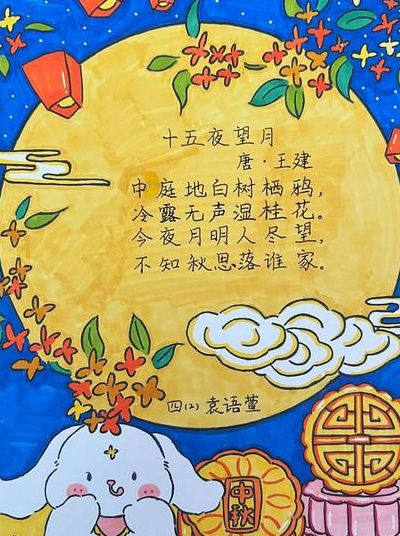 十五夜望月
唐·王建
中庭地白树栖鸦,
冷露无声湿桂花。
今夜月明人尽望,
不知秋思落谁家。
四(2) 袁语萱
中秋